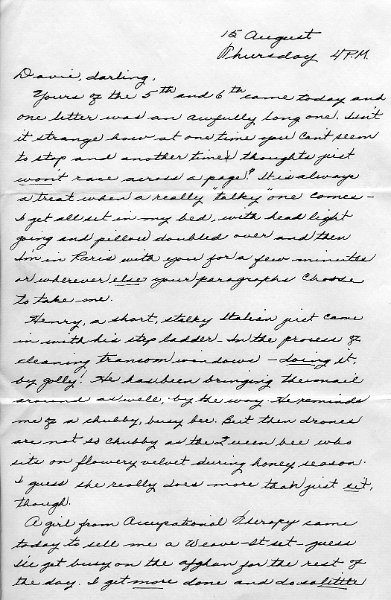 15 August
Thursday 4 P.M.
Davie, darling,
Yours of the 5th and 6th came today and
one letter was an awfully long one. Isn't
it strange how at one time you can't seem
to stop and another time thoughts just
won't race across a page? It is always
a treat when a really "talky" one comes -
I get all set in my bed, with head light
going and pillow doubled over and then
I'm in Paris with you for a few minutes
or wherever else your paragraphs choose
to take me.
Henry, a short, stalky Italian just came
in with his step ladder - In the process of
cleaning transom windows - doing it,
by golly! He has been bringing the mail
around as well, by the way. He reminds
me of a chubby, busy bee. But then drones
are not so chubby as the Queen bee who
sits on flowery velvet during honey season.
I guess she really does more than just sit,
though.
A girl from Occupational Therapy came
today to sell me a Weave-It set - guess
I'll get busy on the afghan for the rest of
the day. I get more done and do a better